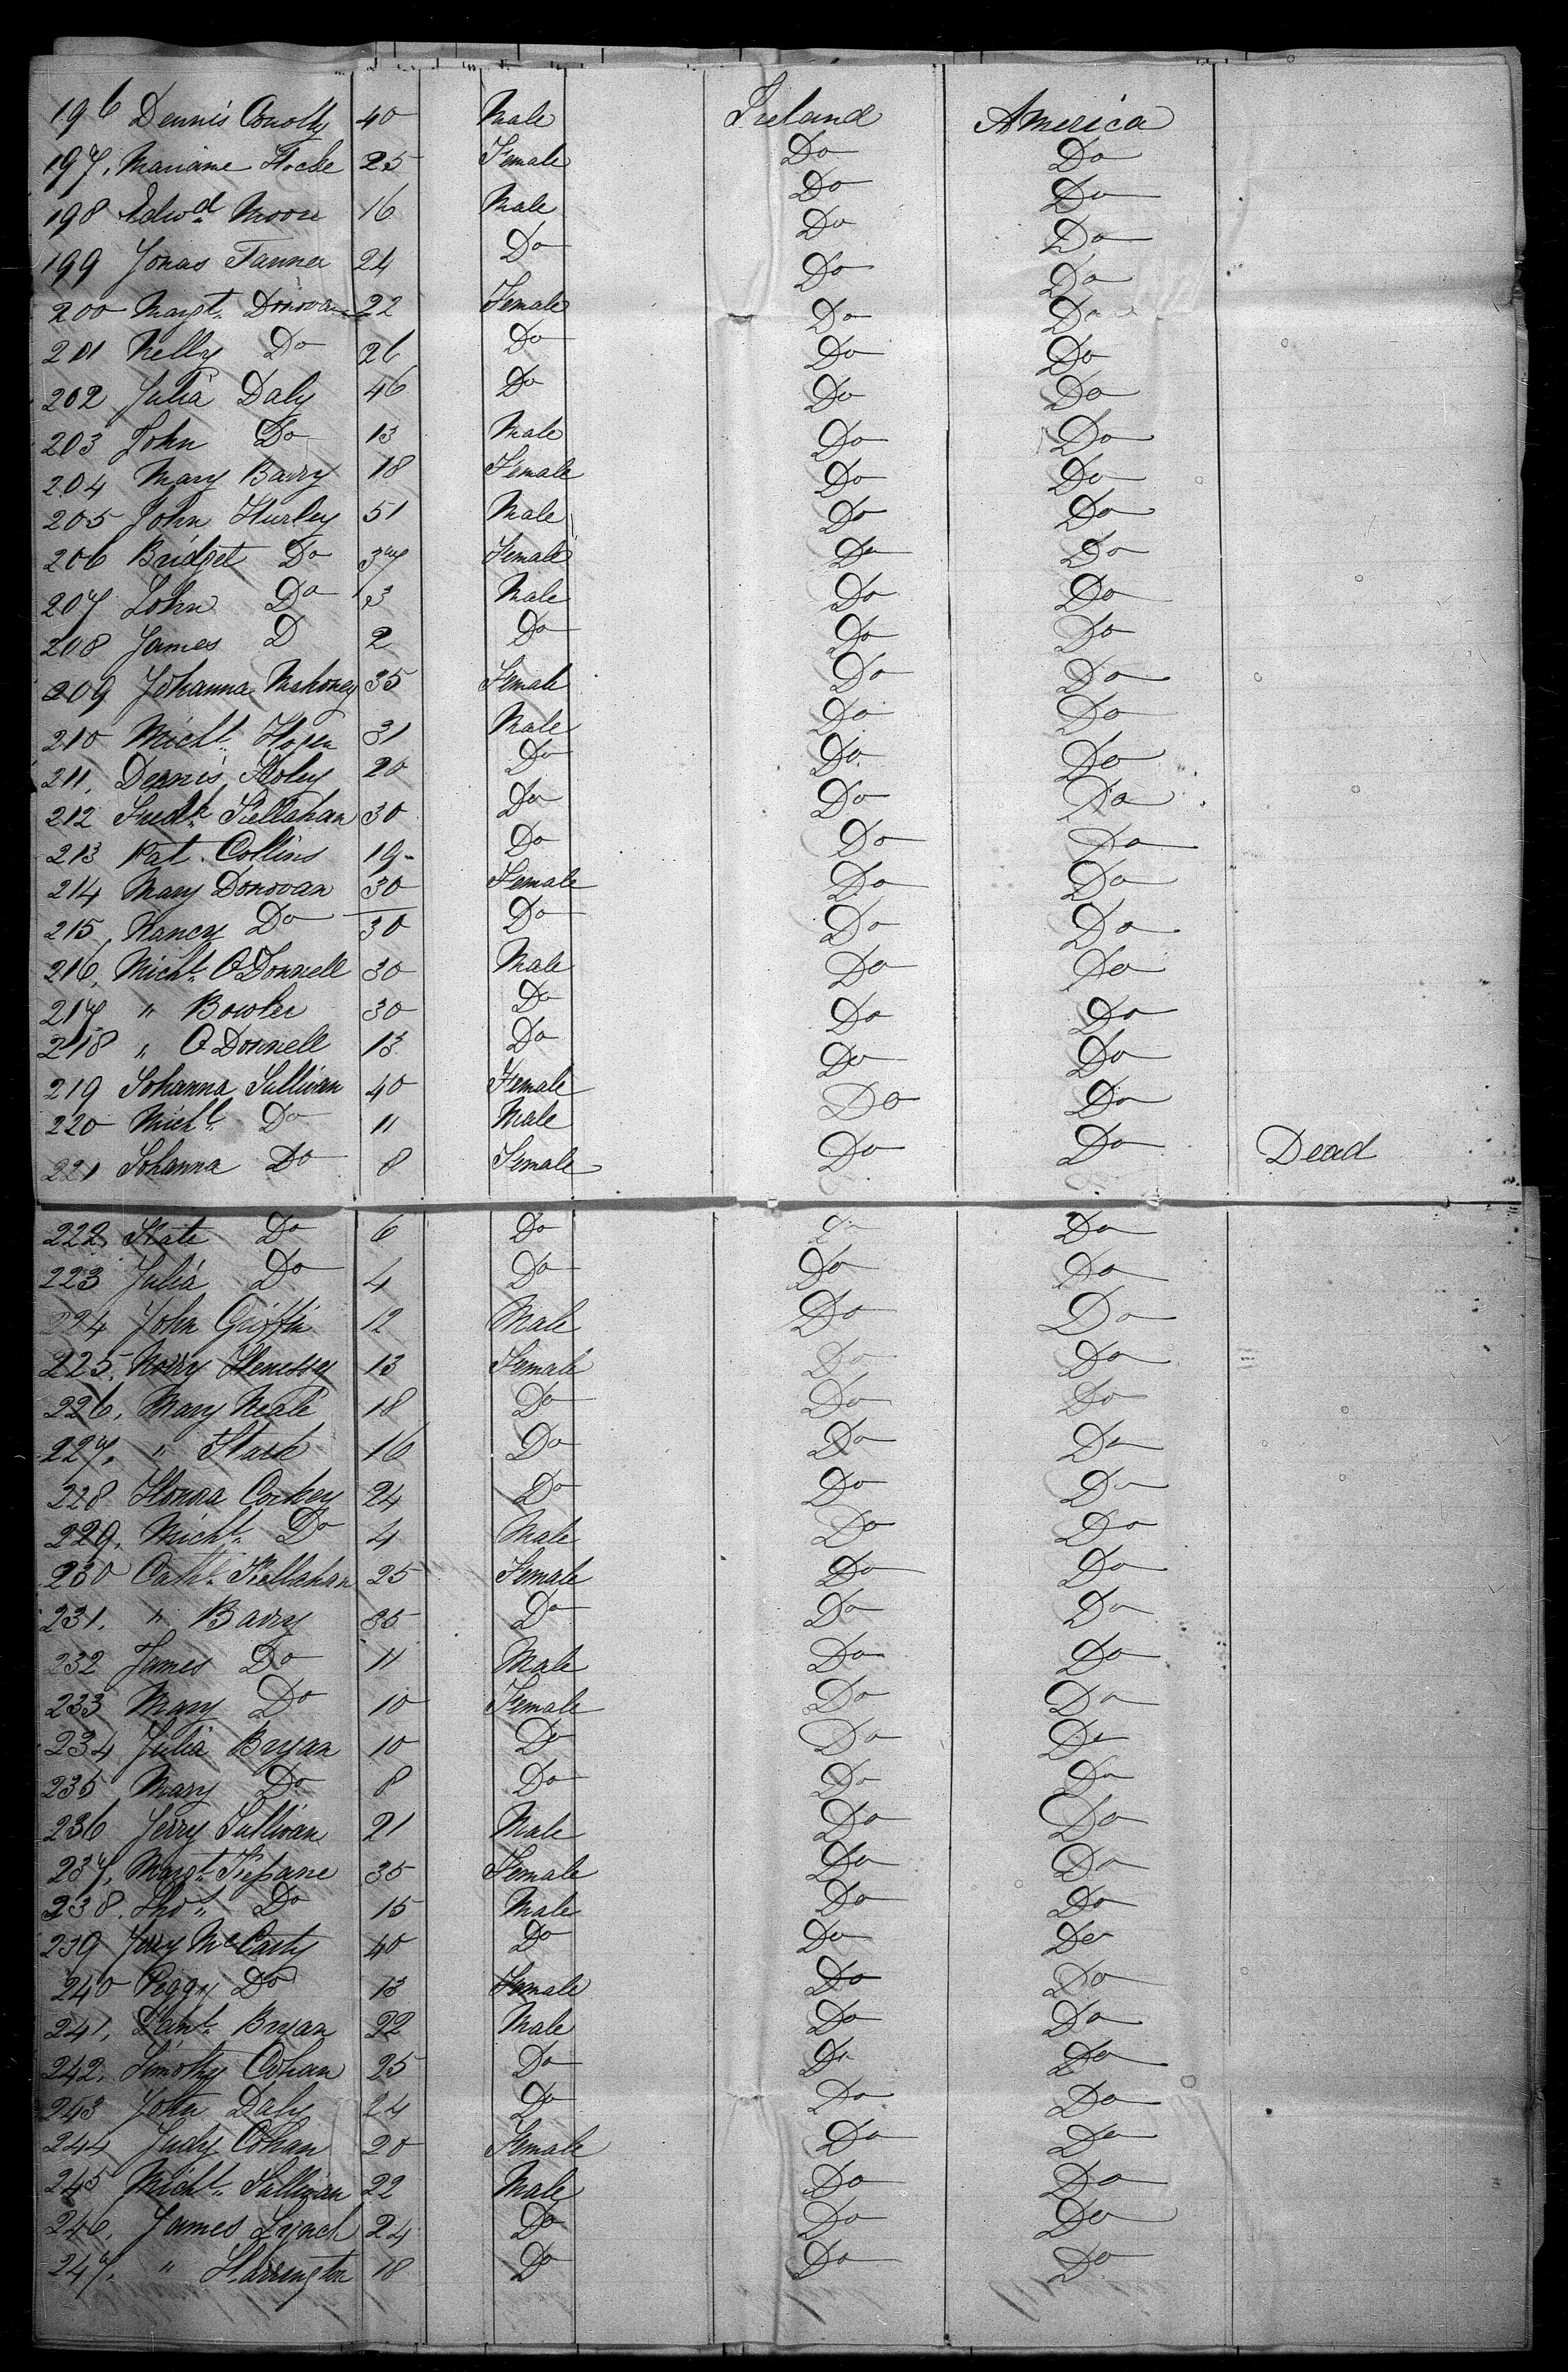 196 Dennis Conolly 40 Male Ireland America
197. Mariane 25 Female Do Do
198 Edwd. Moore 16 Male Do Do
199 Jonas Tanner 24 Do Do Do
200 Margt. Donovan 22 Female Do Do
201 Nelly Do 26 Do Do Do
202 Julia Daly 46 Do Do Do
203 John Do 13 Male Do Do
204 Mary Barry 18 Female Do Do
205 John Hurley 51 Male Do Do
206 Bridget Do 37 Female Do Do
207 John Do 3 Male Do Do
208 James D 2 Do Do Do
209 Johanna Mahoney 35 Female Do Do
210 Michl. Hogen 31 Male Do Do
211. Dennis Holey 20 Do Do Do
212 Fredk. Kellahan 30 Do Do Do
213 Pat. Collins 19 Do Do Do
214 Mary Donovan 30 Female Do Do
215 Nancy Do 30 Do Do Do
216. Michl. O Donnell 30 Male Do Do
217 " Bowler 30 Do Do Do
218 " O Donnell 13 Do Do Do
219 Johanna Sullivan 40 Female Do Do
220 Michl. Do 11 Male Do Do
221 Johanna Do 8 Female Do Do Dead
222. Kate Do 6 Do Do Do
223 Julia Do 4 Do Do Do
224 John Griffin 12 Male Do Do
225. Norry Henessy 13 Female Do Do
226. Mary Neale 18 Do Do Do
227. " 16 Do Do Do
228 Honora Corkey 24 Do Do Do
229. Michl. Do 4 Male Do Do
230 Cathl. Kellahan 25 Female Do Do
231. " Barry 35 Do Do Do
232 James Do 11 Male Do Do
233 Mary Do 10 Female Do Do
234 Julia Bryan 10 Do Do Do
235 Mary Do 8 Do Do Do
236 Jerry Sullivan 21 Male Do Do
237. Margt. 35 Female Do Do
238. Tho". Do 15 Male Do Do
239 Jerry McCarty 40 Do Do Do
240 Peggy Do 13 Female Do Do
241. Danl. Bryan 22 Male Do Do
242. Timothy Cohan 25 Do Do Do
243 John Daly 24 Do Do Do
244 Judy Cohan 20 Female Do Do
245 Michl. Sullivan 22 Male Do Do
246. James Lynch 24 Do Do Do
247. " Harrington 18 Do Do Do